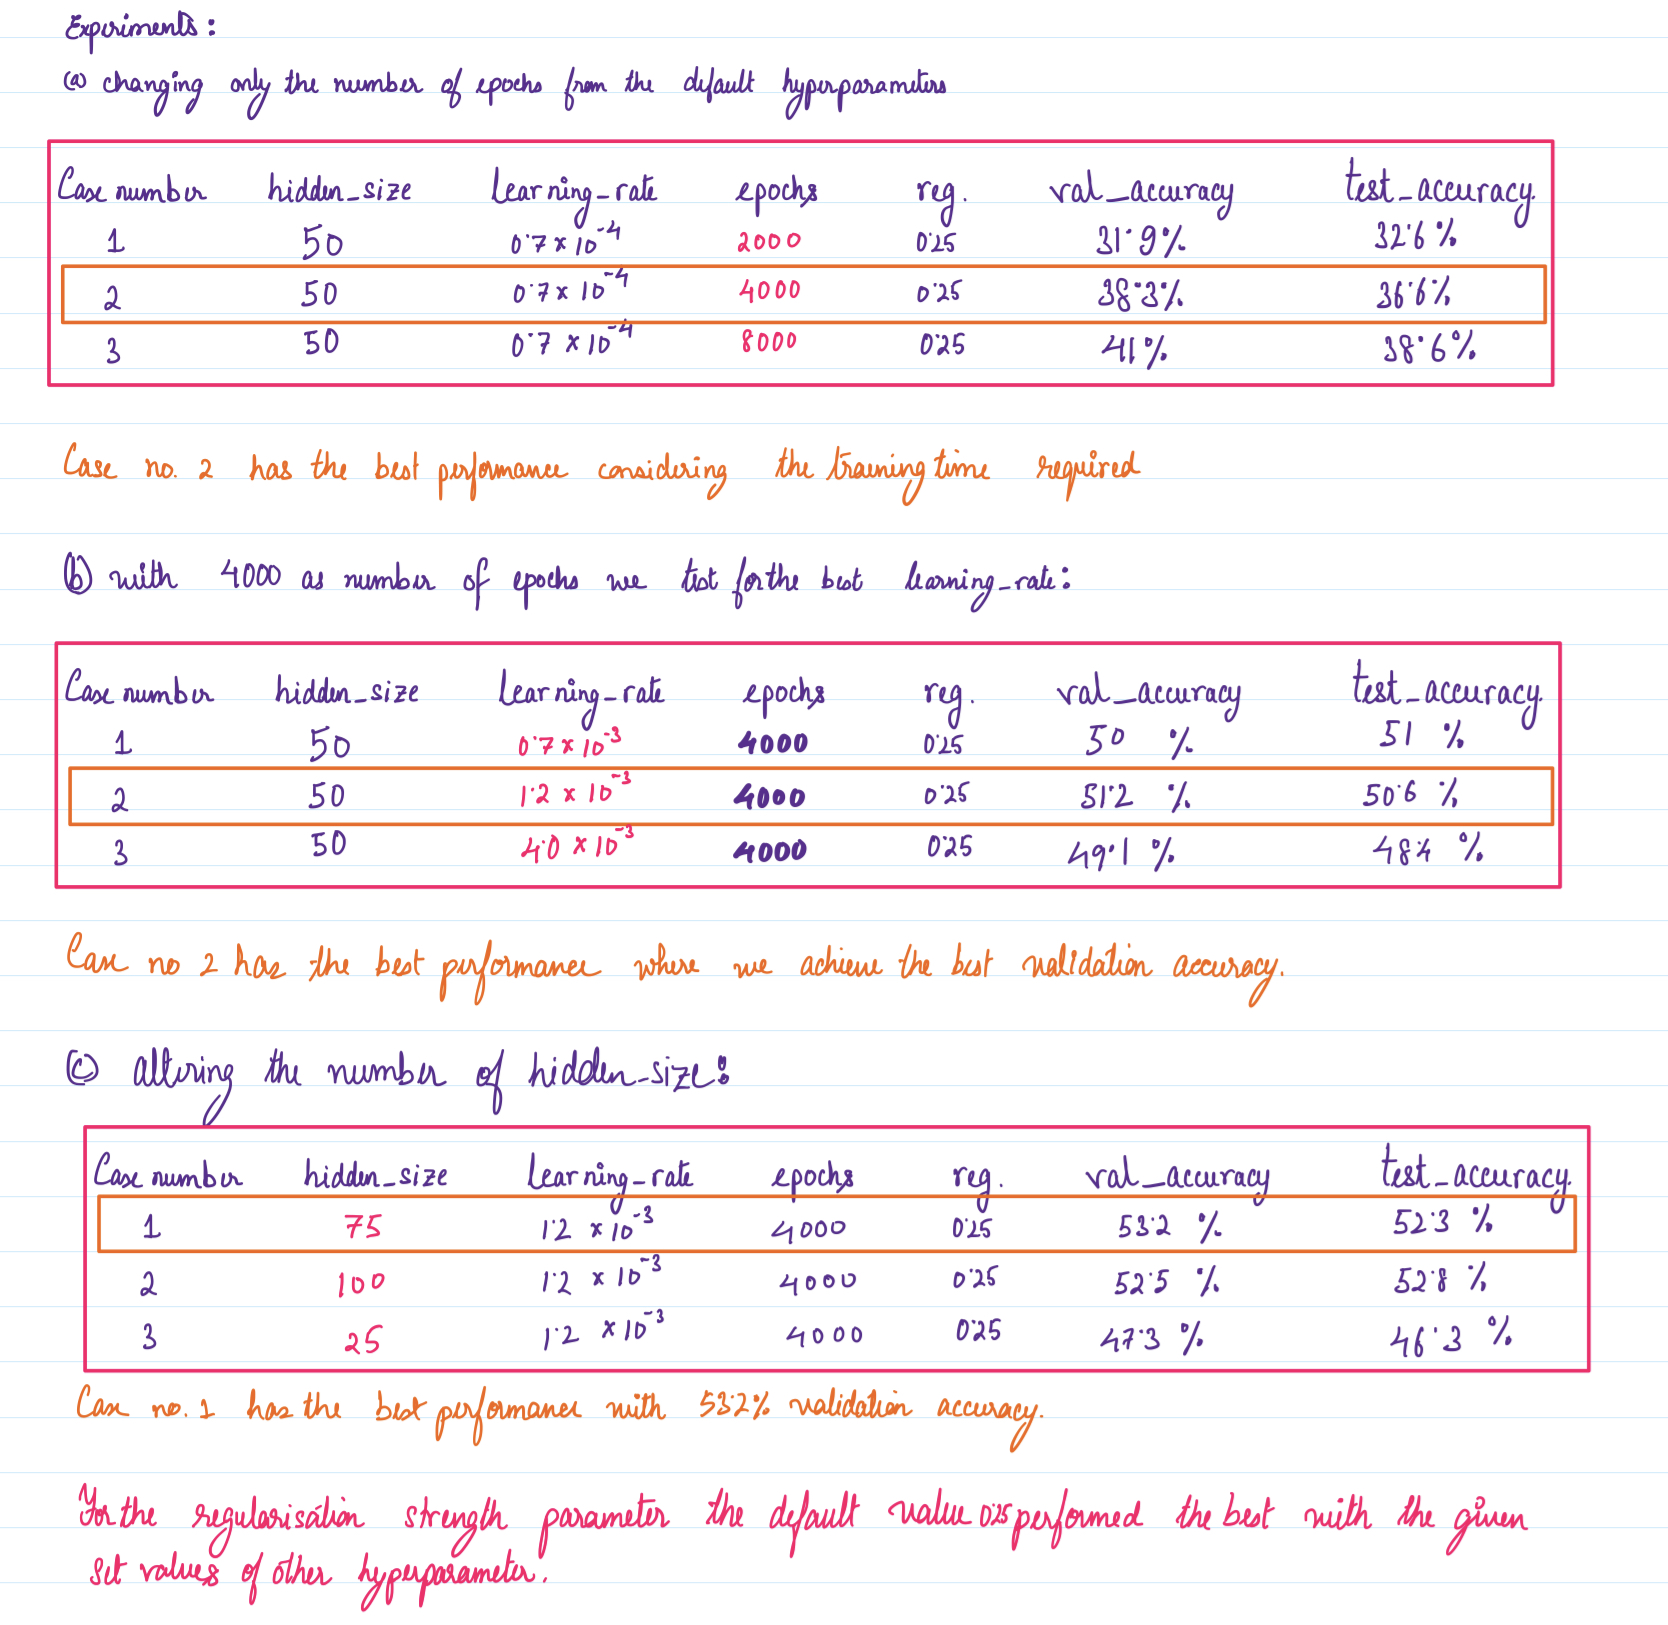 Experiments:
(a) changing only the number of epochs from the default hyperparameters
Case number hidden_size learning_rate epochs reg. val_accuracy test_accuracy.
1 50 0.7 × 10^-4 2000 0.25 31.9% 32.6%
2 50 0.7 × 10^-4 4000 0.25 38.3% 36.6%
3 50 0.7 × 10^-4 8000 0.25 41% 38.6%
Case no. 2 has the best performance considering the training time required
(b) with 4000 as number of epochs we test for the best learning_rate:
Case number hidden_size learning_rate epochs reg. val_accuracy test_accuracy.
1 50 0.7 × 10^-3 4000 0.25 50 % 51 %
2 50 1.2 × 10^-3 4000 0.25 51.2 % 50.6 %
3 50 4.0 × 10^-3 4000 0.25 49.1 % 48.4 %
Case no 2 has the best performance where we achieve the best validation accuracy.
(c) altering the number of hidden_size:
Case number hidden_size learning_rate epochs reg. val_accuracy test_accuracy.
1 75 1.2 × 10^-3 4000 0.25 53.2 % 52.3 %
2 100 1.2 × 10^-3 4000 0.25 52.5 % 52.8 %
3 25 1.2 × 10^-3 4000 0.25 47.3 % 46.3 %
Case no. 1 has the best performance with 53.2% validation accuracy.
For the regularisation strength parameter the default value 0.25 performed the best with the given
set values of other hyperparameter.